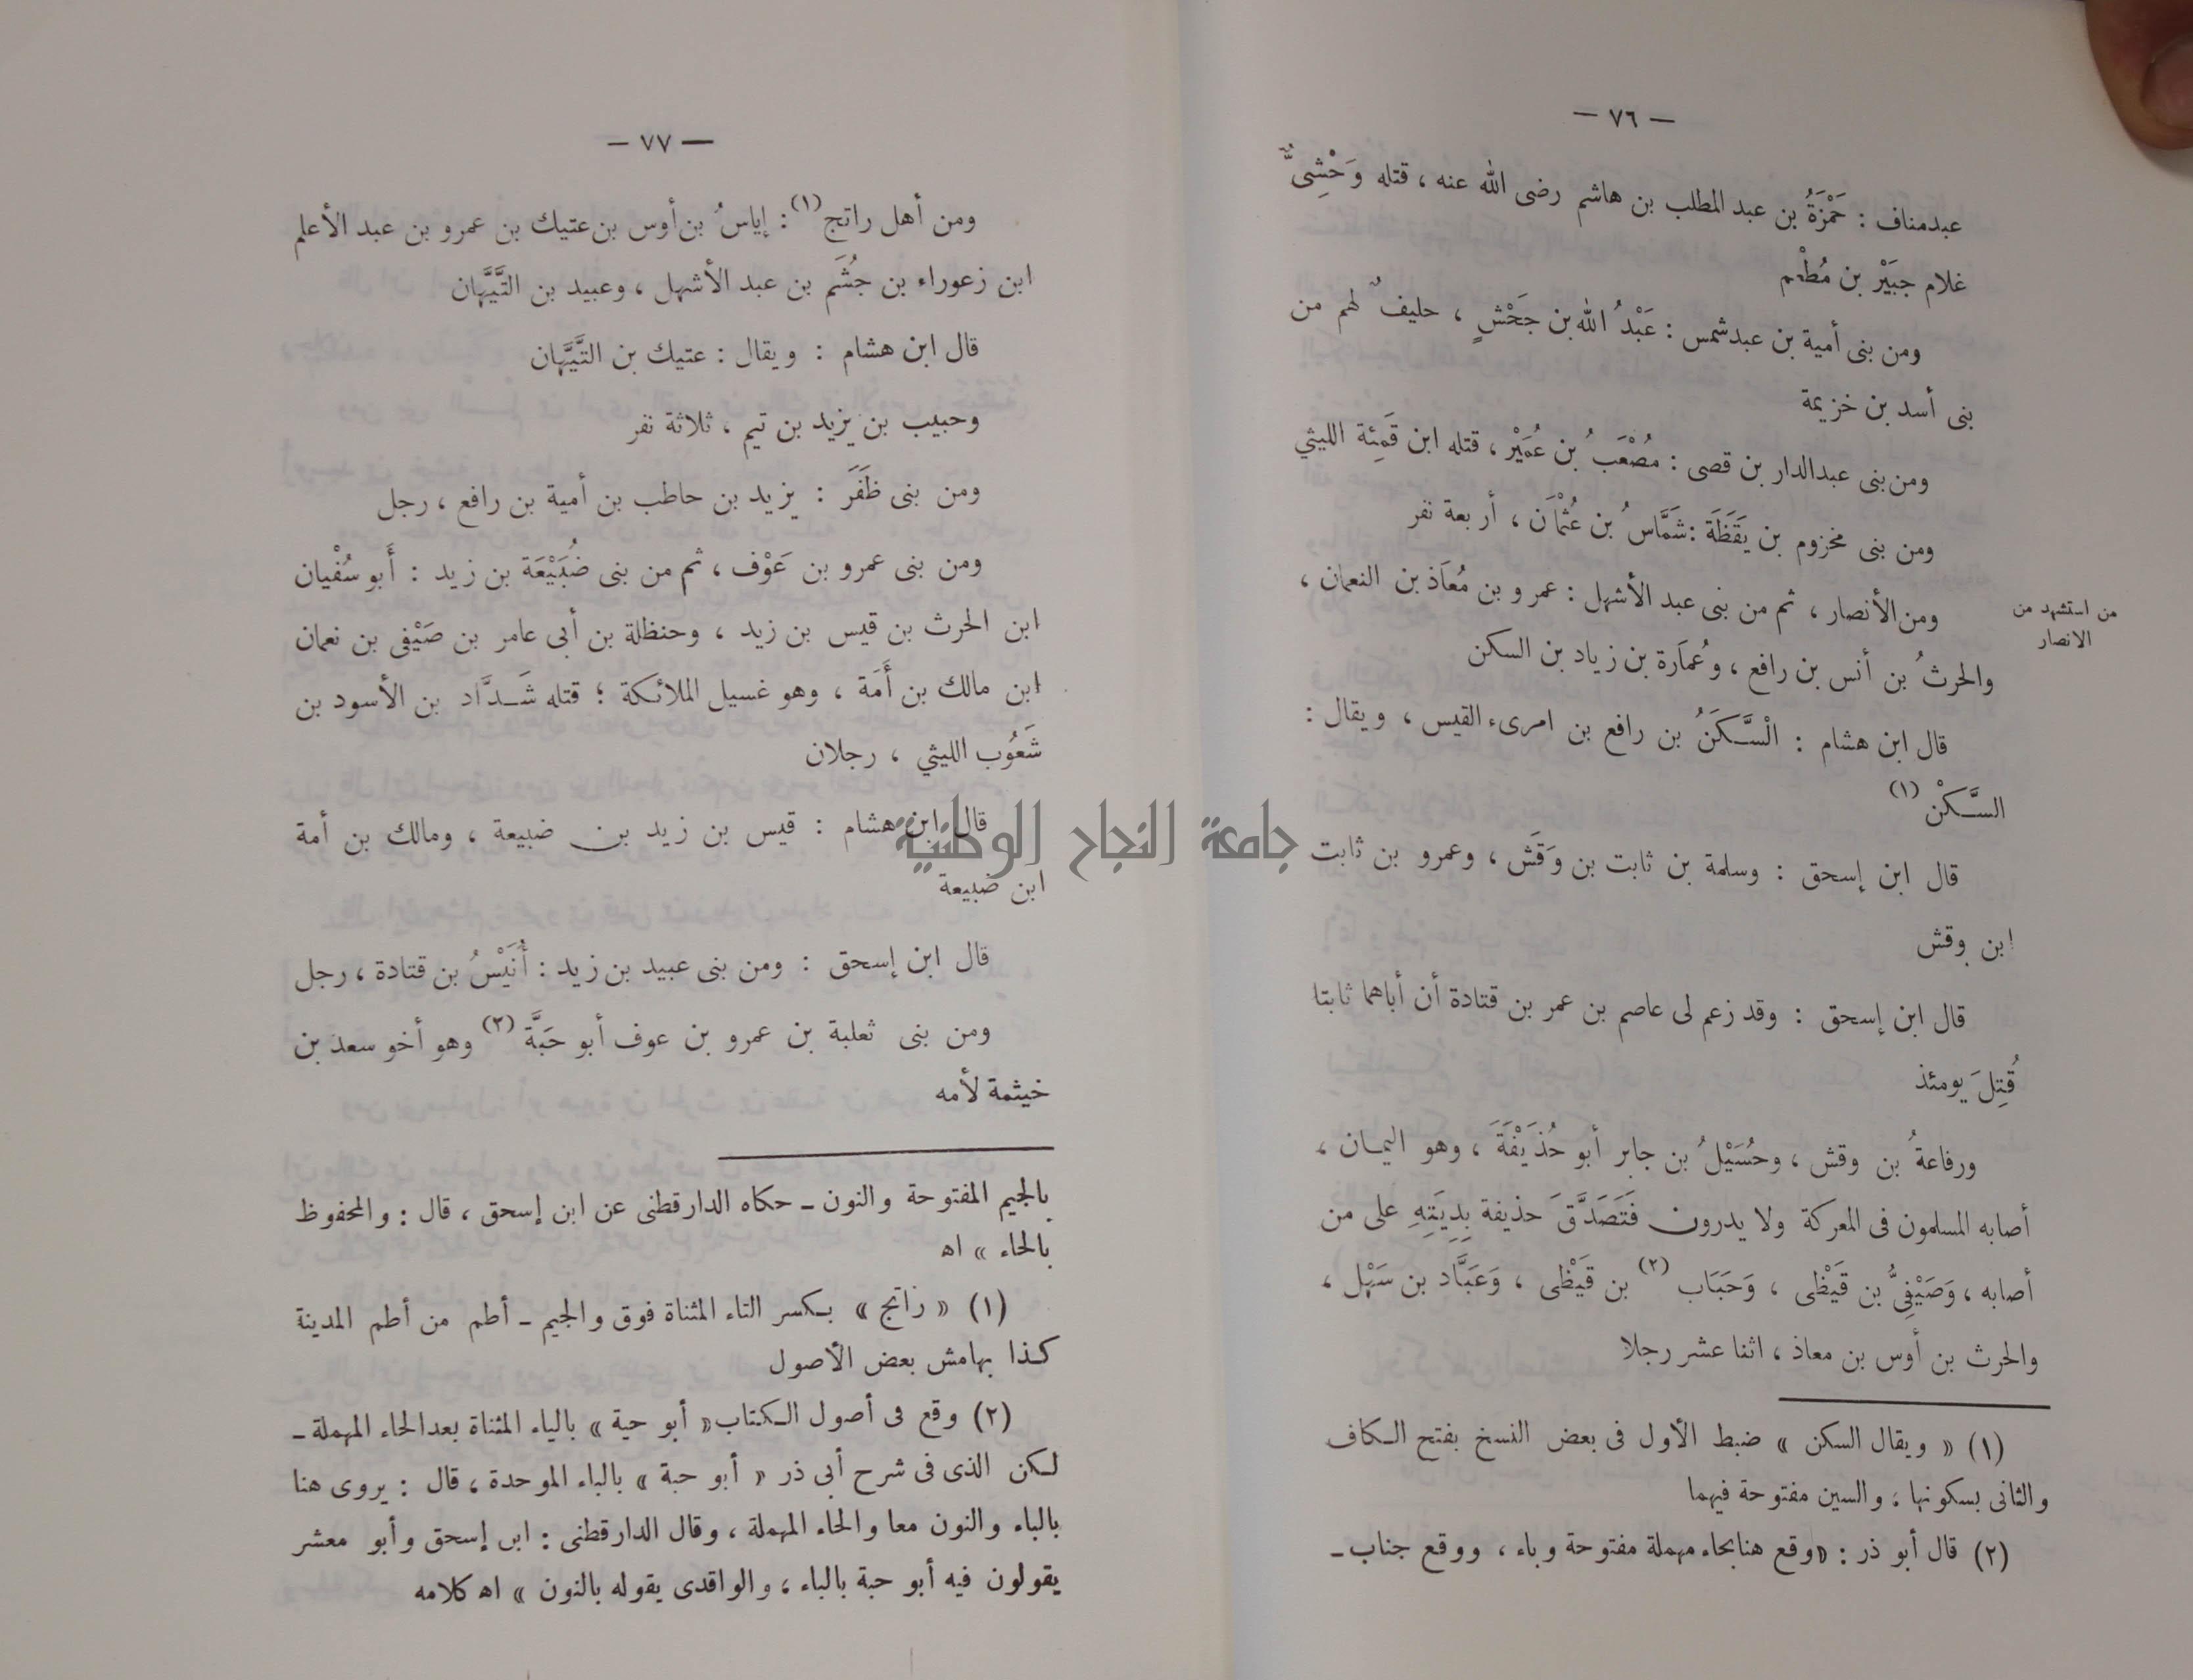 — ٧٦ —
عبدمناف : حَمْزَةُ بن عبد المطلب بن هاشم رضى الله عنه ، قتله وَحْشِىٌّ
غلام جبَيْر بن مُطْعِم
ومن بنى أمية بن عبدشمس : عَبْدُ الله بن جَحْشٍ ، حليفٌ لهم من
بنى أسد بن خزيمة
ومن بنى عبدالدار بن قصى : مصُعَبُ بن عُمَيْر ، قتله ابن قَمِئة الليثي
ومن بنى مخزوم بن يَقَظَة : شَمَّاسُ بن عُثْمَانَ ، أربعة نفر
ومن الأنصار ، ثم من بنى عبد الأشهل : عمرو بن مُعَاذ بن النعمان ،
من استشهد من
الانصار
والحرثُ بن أنس بن رافع ، وعُمَارة بن زياد بن السكن
قال ابن هشام : الْسَّكَنُ بن رافع بن امرىء القيس ، ويقال :
السَّكْن (١)
قال ابن إسحق : وسلمة بن ثابت بن وَقَش ، وعمرو بن ثابت
ابن وقش
قال ابن إسحق : وقد زعم لى عاصم بن عمر بن قتادة أن أباهما ثابتا
قُتِلَ يومئذ
ورفاعةُ بن وقش ، وحُسَيْلُ بن جابر أبو حُذَيْفَةَ ، وهو اليمان ،
أصابه المسلمون فى المعركة ولا يدرون فَتَصَدَّقَ حذيفة بِدِيَتِهِ على من
أصابه ، وَصَيْفِىُّ بن قَيْظى ، وَحَبَاب (٢) بن قَيْظى ، وَعَبَّاد بن سَهْل ،
والحرث بن أوس بن معاذ ، اثنا عشر رجلا
(١) « ويقال السكن » ضبط الأول فى بعض النسخ بفتح الكاف
والثانى بسكونها ، والسين مفتوحة فيهما
(٢) قال أبو ذر : «وقع هنابحاء مهملة مفتوحة وباء ، ووقع جناب ـ
— ٧٧ —
ومن أهل راتج (١) : إياسُ بن أوس بن عتيك بن عمرو بن عبد الأعلم
ابن زعوراء بن جُشَم بن عبد الأشهل ، وعبيد بن التَّيَّهان
قال ابن هشام : ويقال : عتيك بن التَّيَّهان
وحبيب بن يزيد بن تيم ، ثلاثة نفر
ومن بنى ظَفَرَ : يزيد بن حاطب بن أمية بن رافع ، رجل
ومن بنى عمرو بن عَوْف ، ثم من بنى ضُبَيْعَة بن زيد : أَبو سُفْيان
ابن الحرث بن قيس بن زيد ، وحنظلة بن أبى عامر بن صَيْفى بن نعمان
ابن مالك بن أَمَة ، وهو غسيل الملائكة ؛ قتله شَدَّاد بن الأسود بن
شَعُوب الليثي ، رجلان
قال ابن هشام : قيس بن زيد بن ضبيعة ، ومالك بن أمة
ابن ضبيعة
قال ابن إسحق : ومن بنى عبيد بن زيد : أُنَيْسُ بن قتادة ، رجل
ومن بنى ثعلبة بن عمرو بن عوف أبو حَبَّة (٢) وهو أخو سعد بن
خيثمة لأمه
بالجيم المفتوحة والنون ـ حكاه الدارقطنى عن ابن إسحق ، قال : والمحفوظ
بالحاء » اه
(١) « راتج » بكسر التاء المثناة فوق والجيم ـ أطم من أطم المدينة
كذا بهامش بعض الأصول
(٢) وقع فى أصول الكتاب « أبو حية » بالياء المثناة بعد الحاء المهملة ـ
لكن الذى فى شرح أبى ذر « أبو حبة » بالباء الموحدة ، قال : يروى هنا
بالباء والنون معا والحاء المهملة ، وقال الدارقطنى : ابن إسحق وأبو معشر
يقولون فيه أبو حبة بالباء ، والواقدى يقوله بالنون » اه كلامه
جامعة النجاح الوطنية